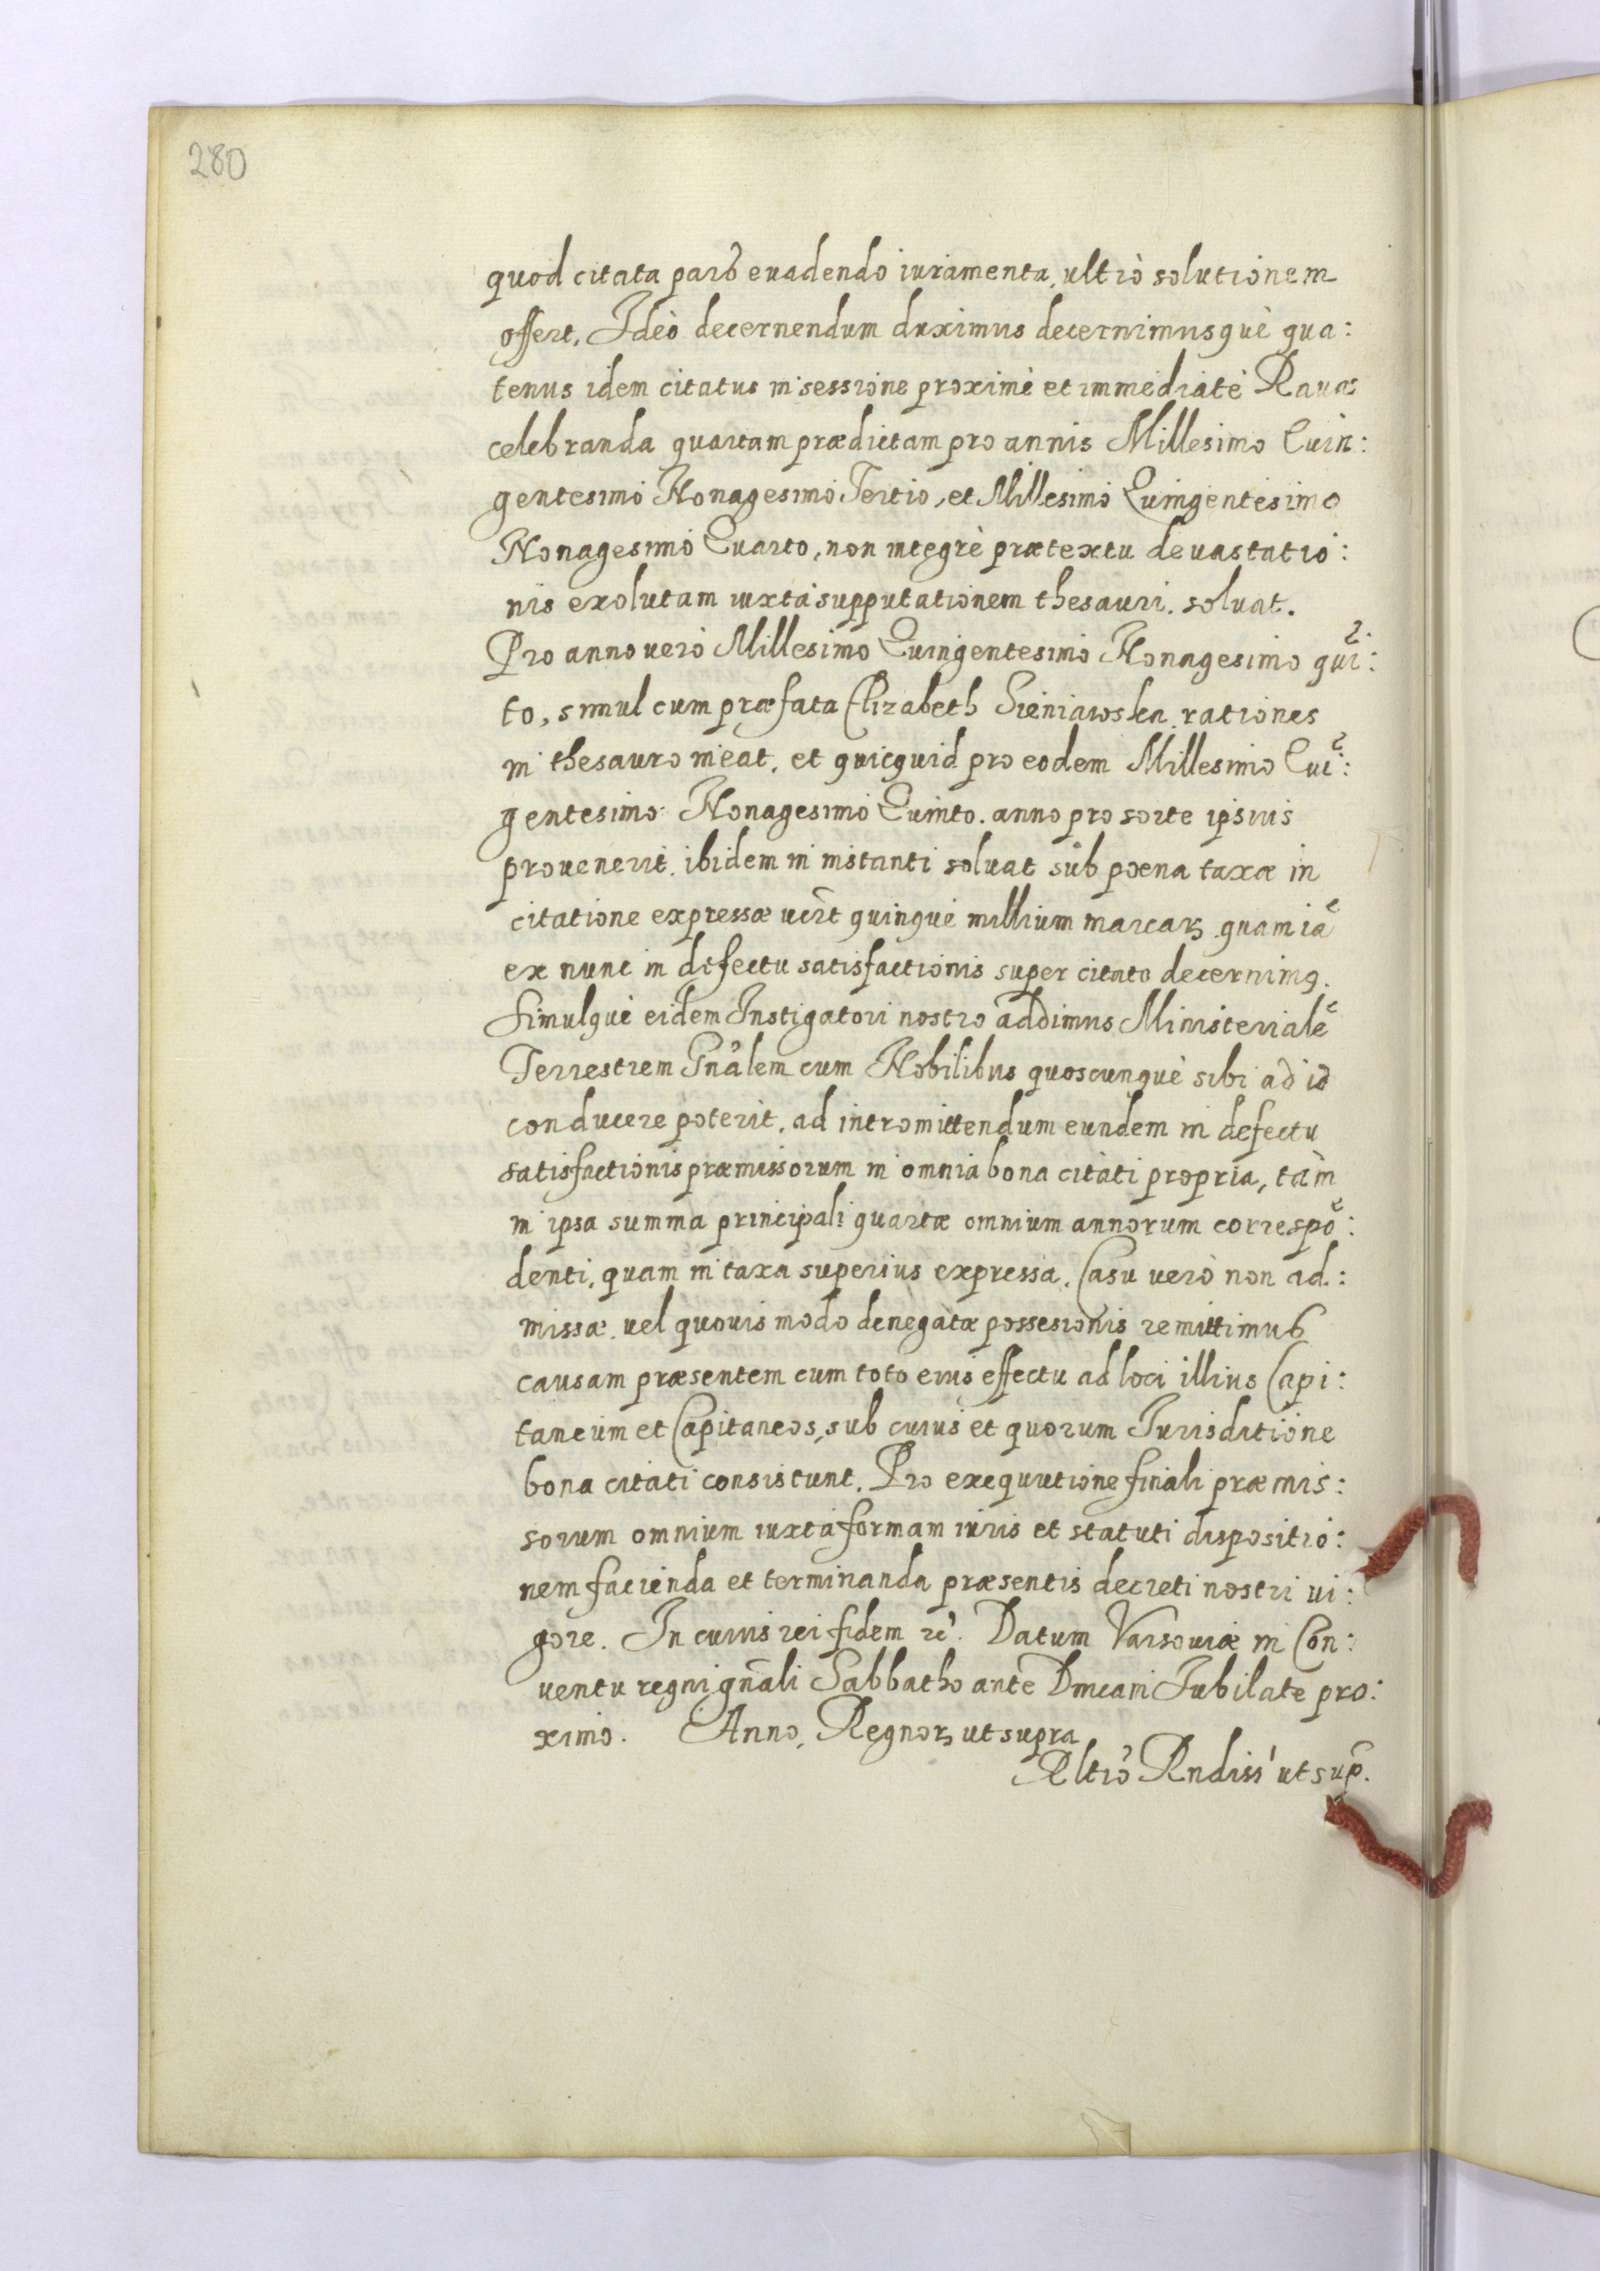 280
quod citata pars euadendo iuramenta, ultrò solutionem
offert, Ideò decernendum duximus decernimusquè qua:
tenus idem citatus in sessione proximè et immediatè Rauæ
celebranda quartam prædictam pro annis Millesimo Quin:
gentesimo Nonagesimo Tertio, et Millesimo Quingentesimo
Nonagesimo Quarto, non integrè prætextu deuastatio:
nis exolutam iuxta supputationem thesauri. soluat.
Pro anno verò Millesimo Quingentesimo Nonagesimo qui~:
to, simul cum præfata Elizabeth Sieniawska rationes
in thesauro ineat, et quicquid pro eodem Millesimo Qui~:
gentesimo Nonagesimo Quinto. anno pro sorte ipsius
prouenerit. ibidem in instanti soluat sub poena taxæ in
citatione expressæ vi~t quinquè millium marcaꝝ quam ia~
ex nunc in defectu satisfactionis super citato decernimꝰ.
Simulquè eidem Instigatori nostro addimus Ministeriale~
Terrestrem Gn~alem cum Nobilibus quoscunquè sibi ad id
conducere poterit, ad intromittendum eundem in defectu
satisfactionis præmissorum in omnia bona citati propria, tàm
in ipsa summa principali quartæ omnium annorum correspo~:
denti, quam in taxa superius expressa. Casu verò non ad:
missæ. vel quouis modo denegatæ possesionis remittimus
causam præsentem cum toto eius effectu ad loci illius Capi:
taneum et Capitaneos, sub cuius et quorum Jurisditione
bona citati consistunt. Pro exequutione finali præmis:
sorum omnium iuxta formam iuris et statuti dispositio:
nem facienda et terminanda præsentis decreti nostri vi:
gore. In cuius rei fidem rc~. Datum Varsouiæ in Con:
uentu regni gn~ali Sabbatho ante Dm~cam Jubilate pro:
ximo. Anno, Regnoꝝ ut supra
Rltio~ Rndiss~ ut sup~.